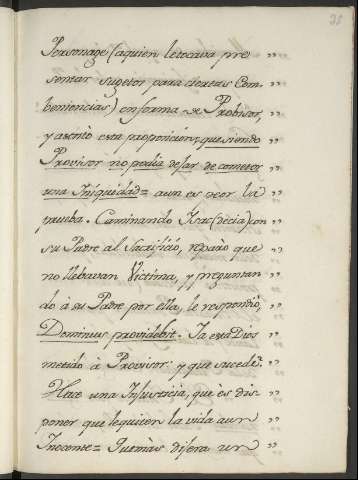 38
Personage (aquien letocava pre „
sentar sugetos para ciertas Com- „
beniencias) en forma de Probisor, „
y acrito esta proposicion, que siendo „
Provisor no podia dejar de cometer „
una Iniquidad= aun es peor la „
prueba. Caminando Isac (decia) con „
su Padre al Sacrificio, reparo que „
no llebavan Victima, y preguntan „
do à su Padre por ella, le respondio, „
Dominus providebit. Ya era Dios „
metido à Provisor: y què sucede? „
Hace una Injusticia, que ès dis- „
poner que lequiten la vida aun „
Inocente= Quemàs dijera un „